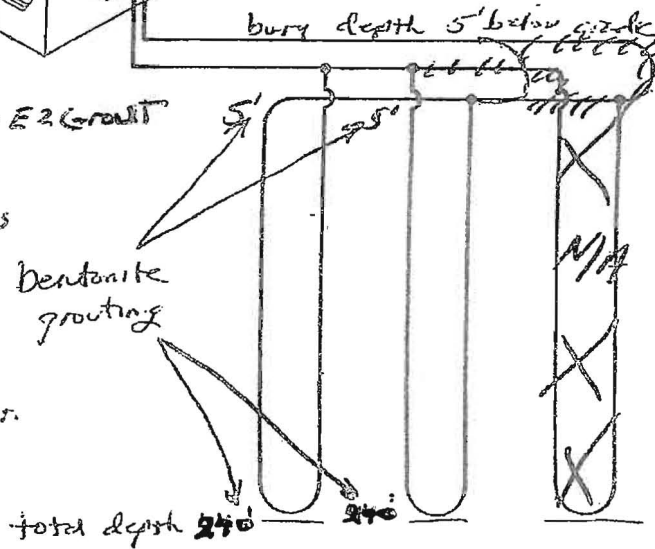 bury depth 5' below grade
EZ Grout 5' 5'
s
bentonite
grouting
N/A
r.
total depth 240' 240'